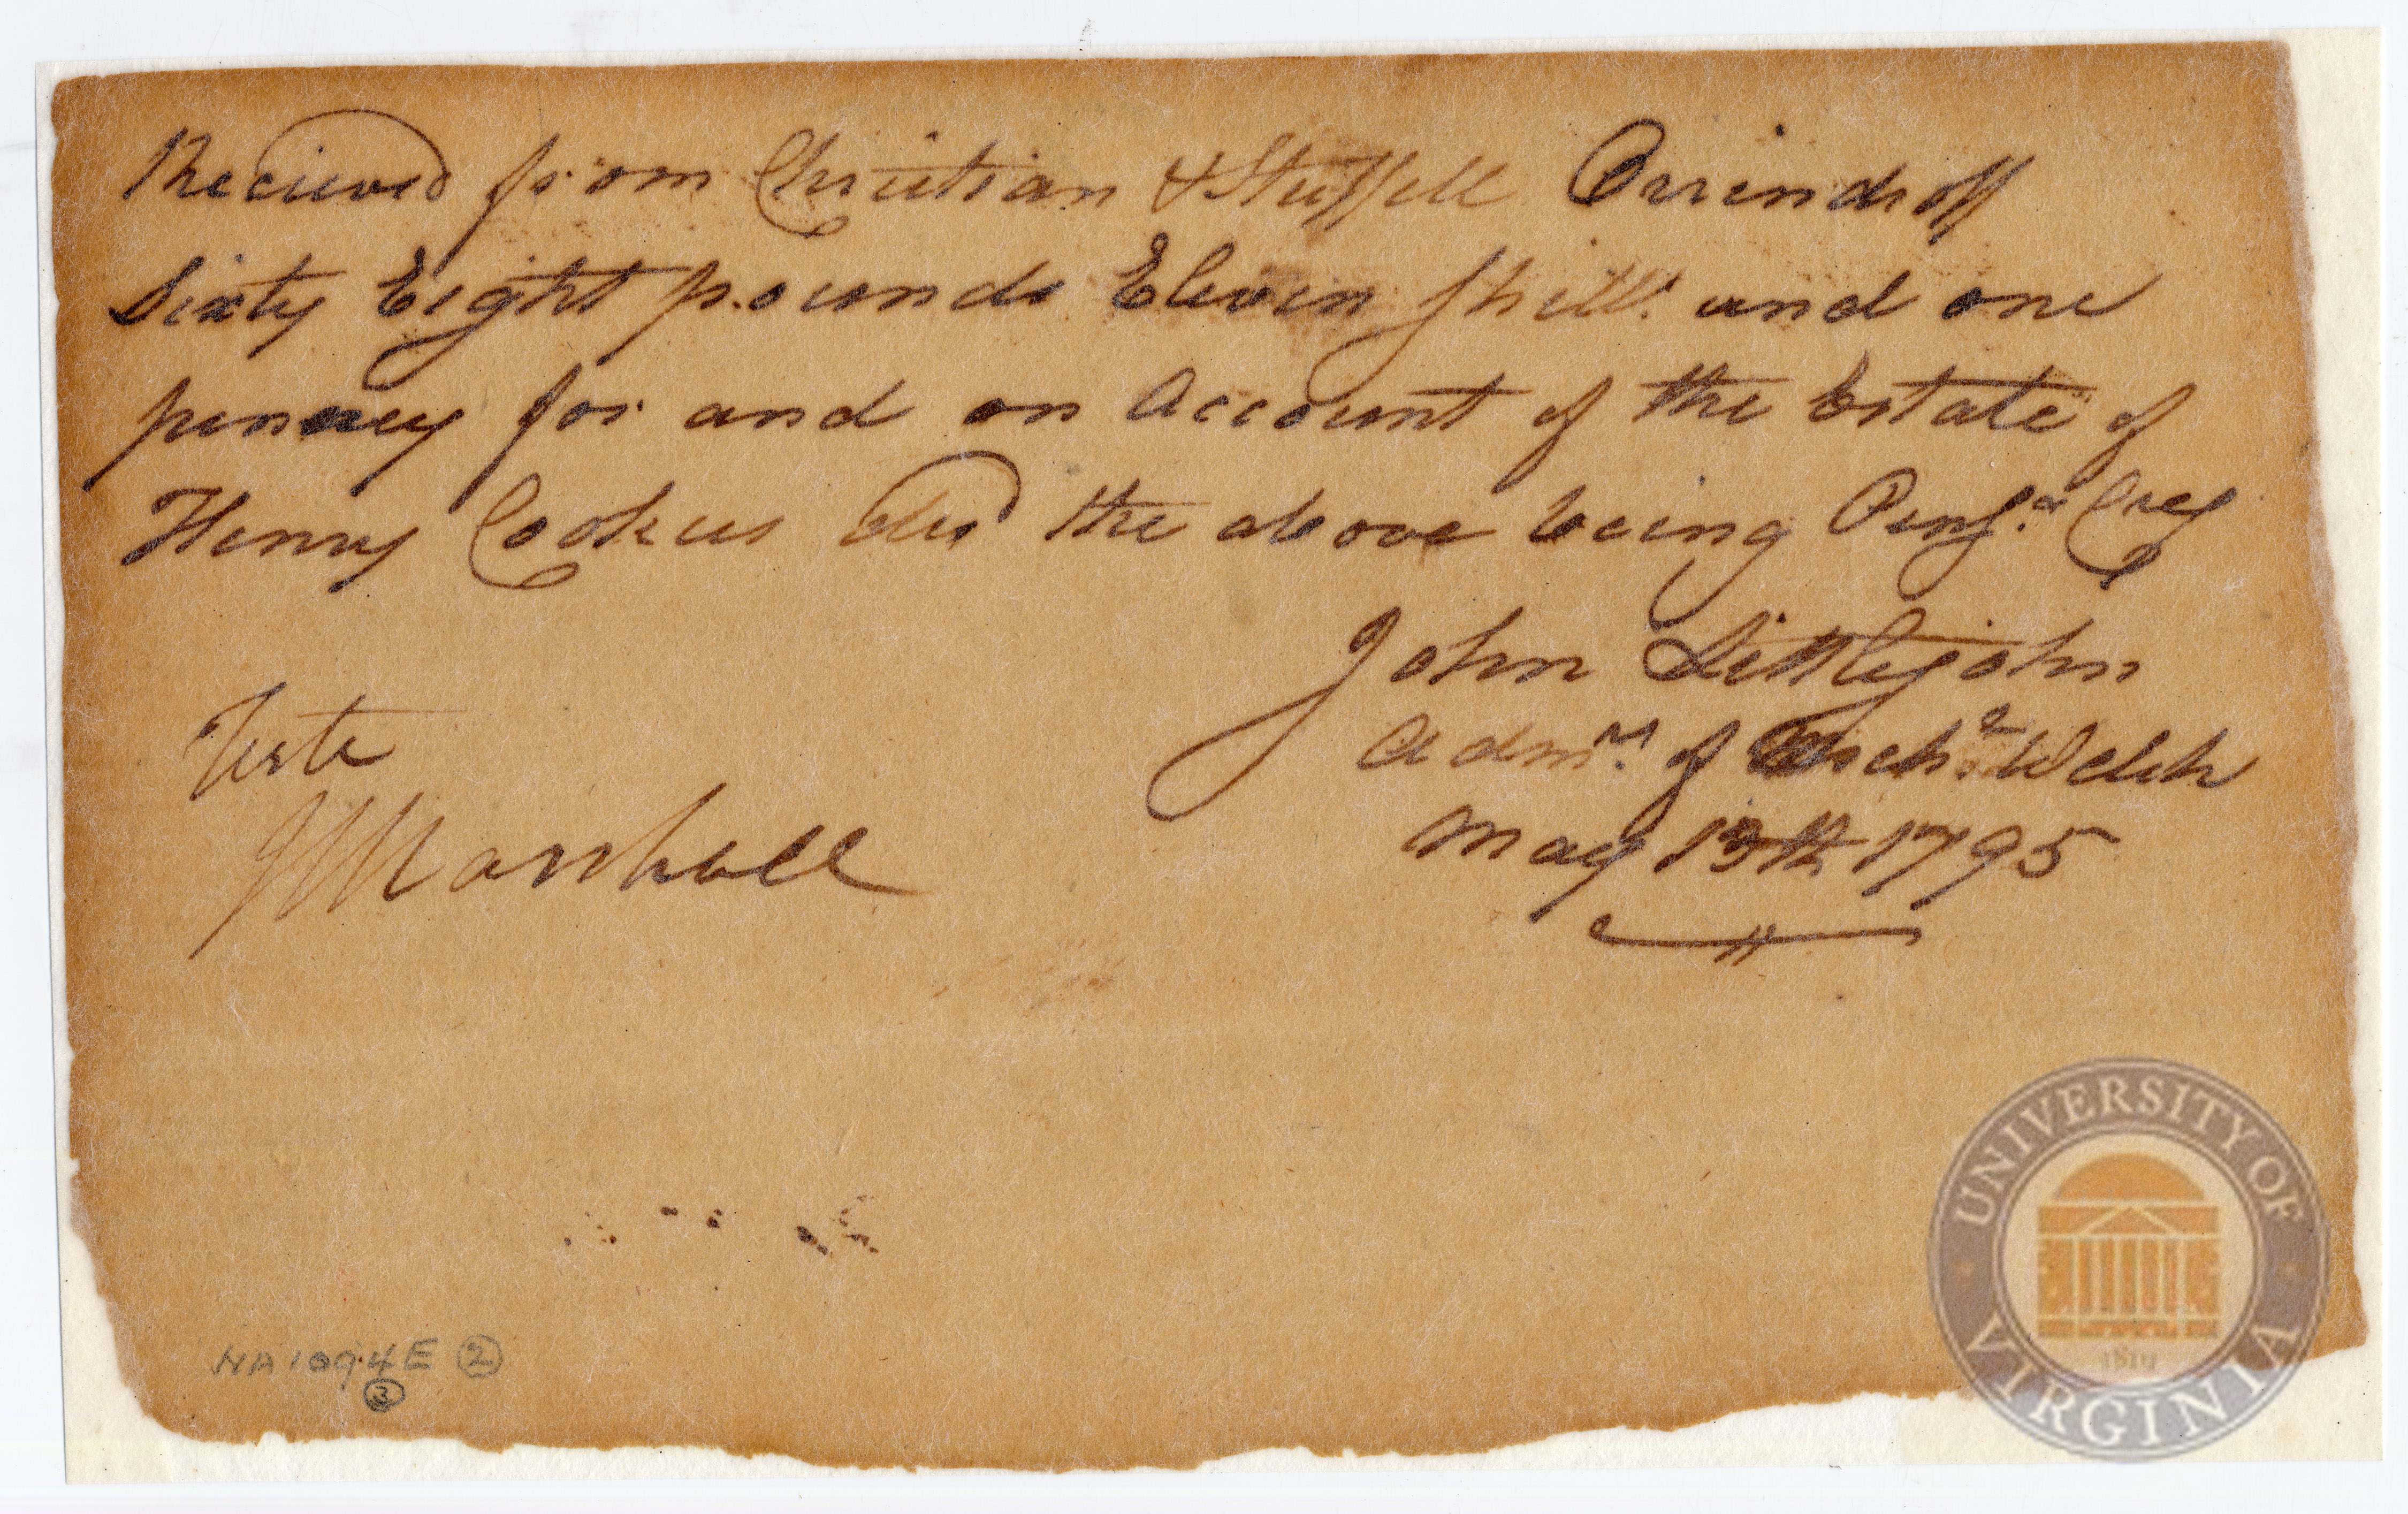 Recieved from Christian & Stuffell Orrindroff
Sixty Eight pounds Eleven Shill.s and one
penney for and on Account of the Estate of
Henry Cookus decd the above being Pens.a Crcy
John Littlejohn
Adm.r of Wsch.r Welsh
May 13th 1795
Teste
J Marshall
NA1094E ②
③
UNIVERSITY OF VIRGINIA
1819